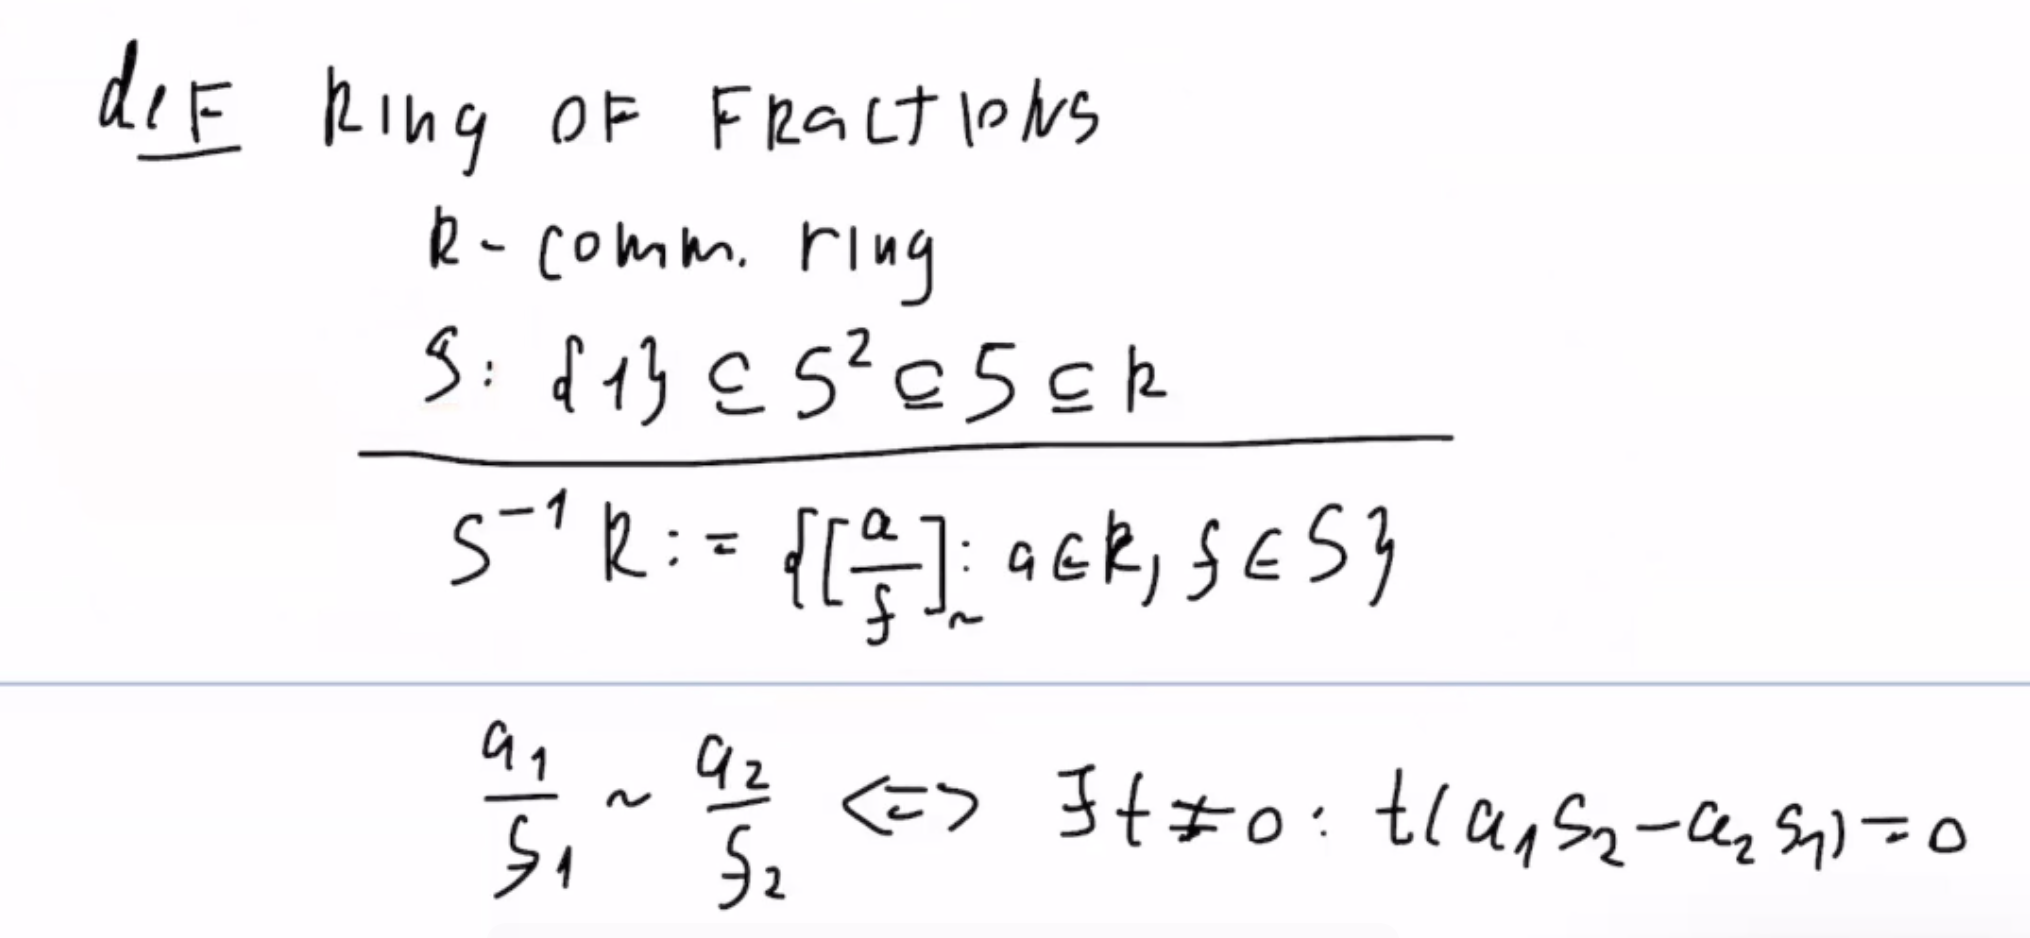 def Ring of Fractions
R - comm. ring
S: {1} ⊆ S² ⊆ S ⊆ R
S⁻¹R := {[a/s]~ : a ∈ R, s ∈ S}
a₁/s₁ ~ a₂/s₂ <=> ∃ t ≠ 0 : t(a₁s₂ - a₂s₁) = 0